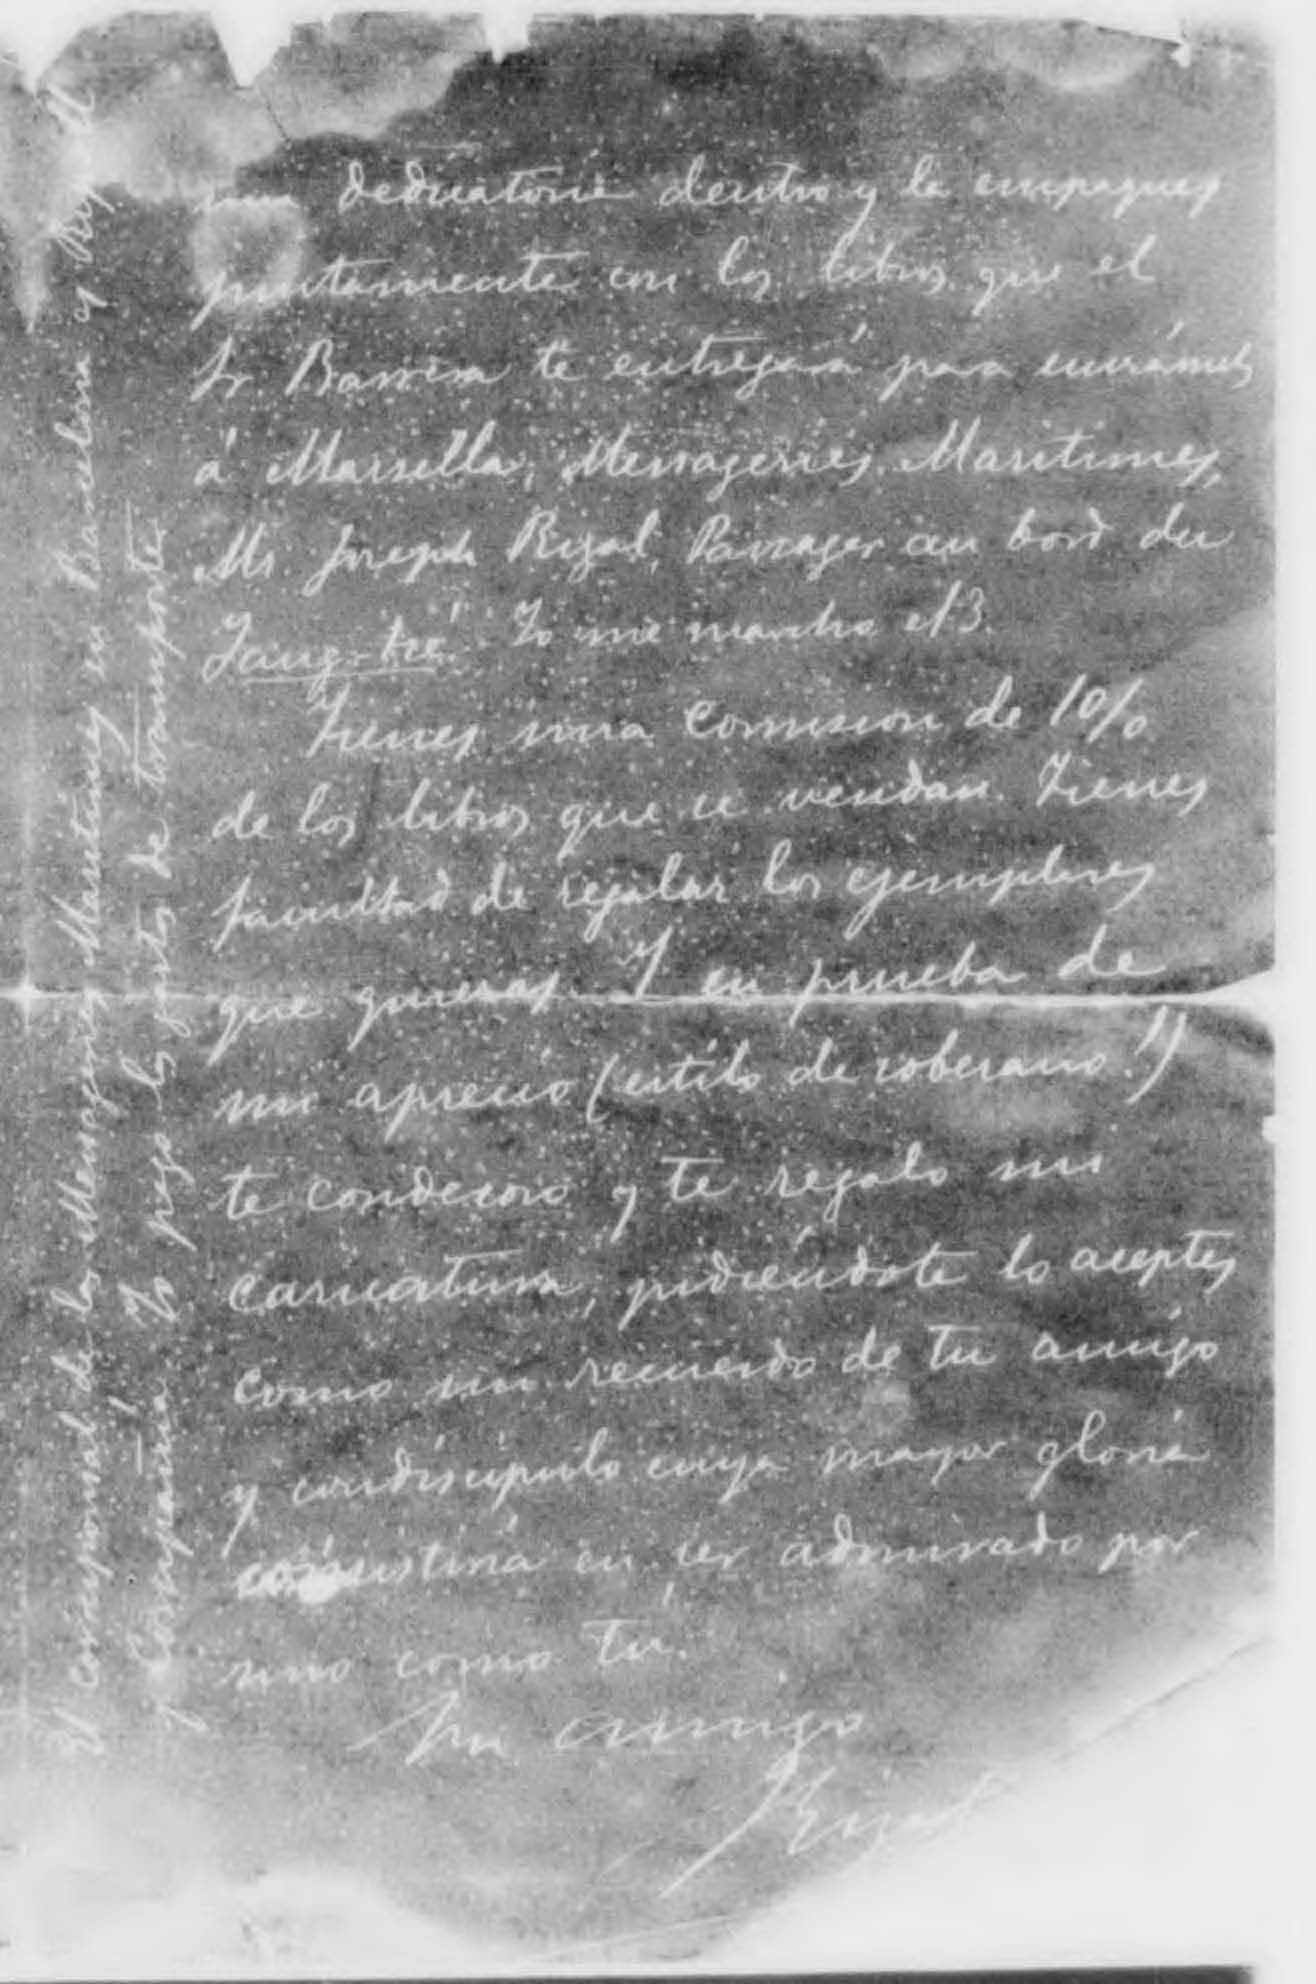 una dedicatoria dentro y la empaques
juntamente con los libros que el
Sr Barrera te entregará para enviármelos
á Marsella, Messageries Maritimes,
Mr Joseph Rizal, Passager au bord du
Yang-tsé. Yo me marcho el 3.
Tienes una comision de 10%
de los libros que se vendan. Tienes
facultad de regalar los ejemplares
que quieras. Y en prueba de
mi aprecio (estilo de soberano!)
te condecoro y te regalo mi
caricatura, pidiéndote lo aceptes
como un recuerdo de tu amigo
y condiscípulo cuya mayor gloria
consistiria en ser admirado por
uno como tú.
Tu amigo
Rizal
El consignatal de las Messageries Maritimes en Barcelona es Ripol
y Compañia. Yo pago los gastos de transporte